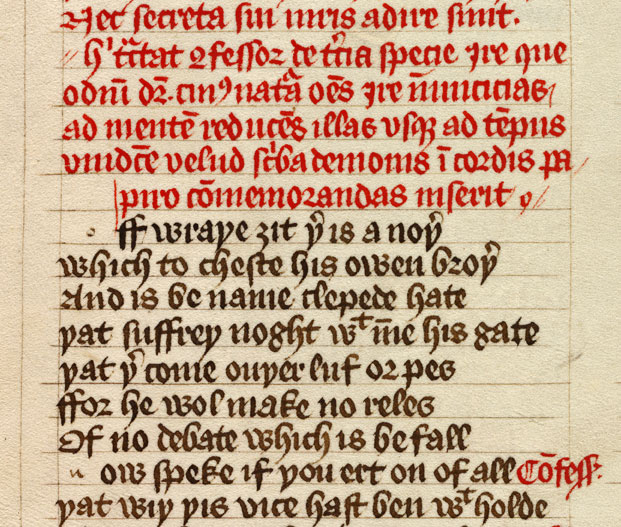 Nec secreta sui iuris adire sinit.
h' t̄c̄tat ꝯfessor de t̄cia specie jre que
odiū dr̄. cui⁹ natᵃ̄ oēs jre inimicicias
ad mentē reducēs illas vsqꝫ ad tēpus
vindc̄e velud sc̄ba demonis ī cordis pa
piro cōmemorandas inserit
ff wraþe ȝit þ̉ is a noþ̉
which to cheste his owen broþ̉
And is be name clepede hate
þat suffreþ noght wᵗ īne his gate
þat þ̉ come ouþer luf or pes
ffor he wol make no reles
Of no debate which is befall
n ow speke if þou ert on of all Cōfess᷒
þat wiþ þis vice hast ben wᵗ holde